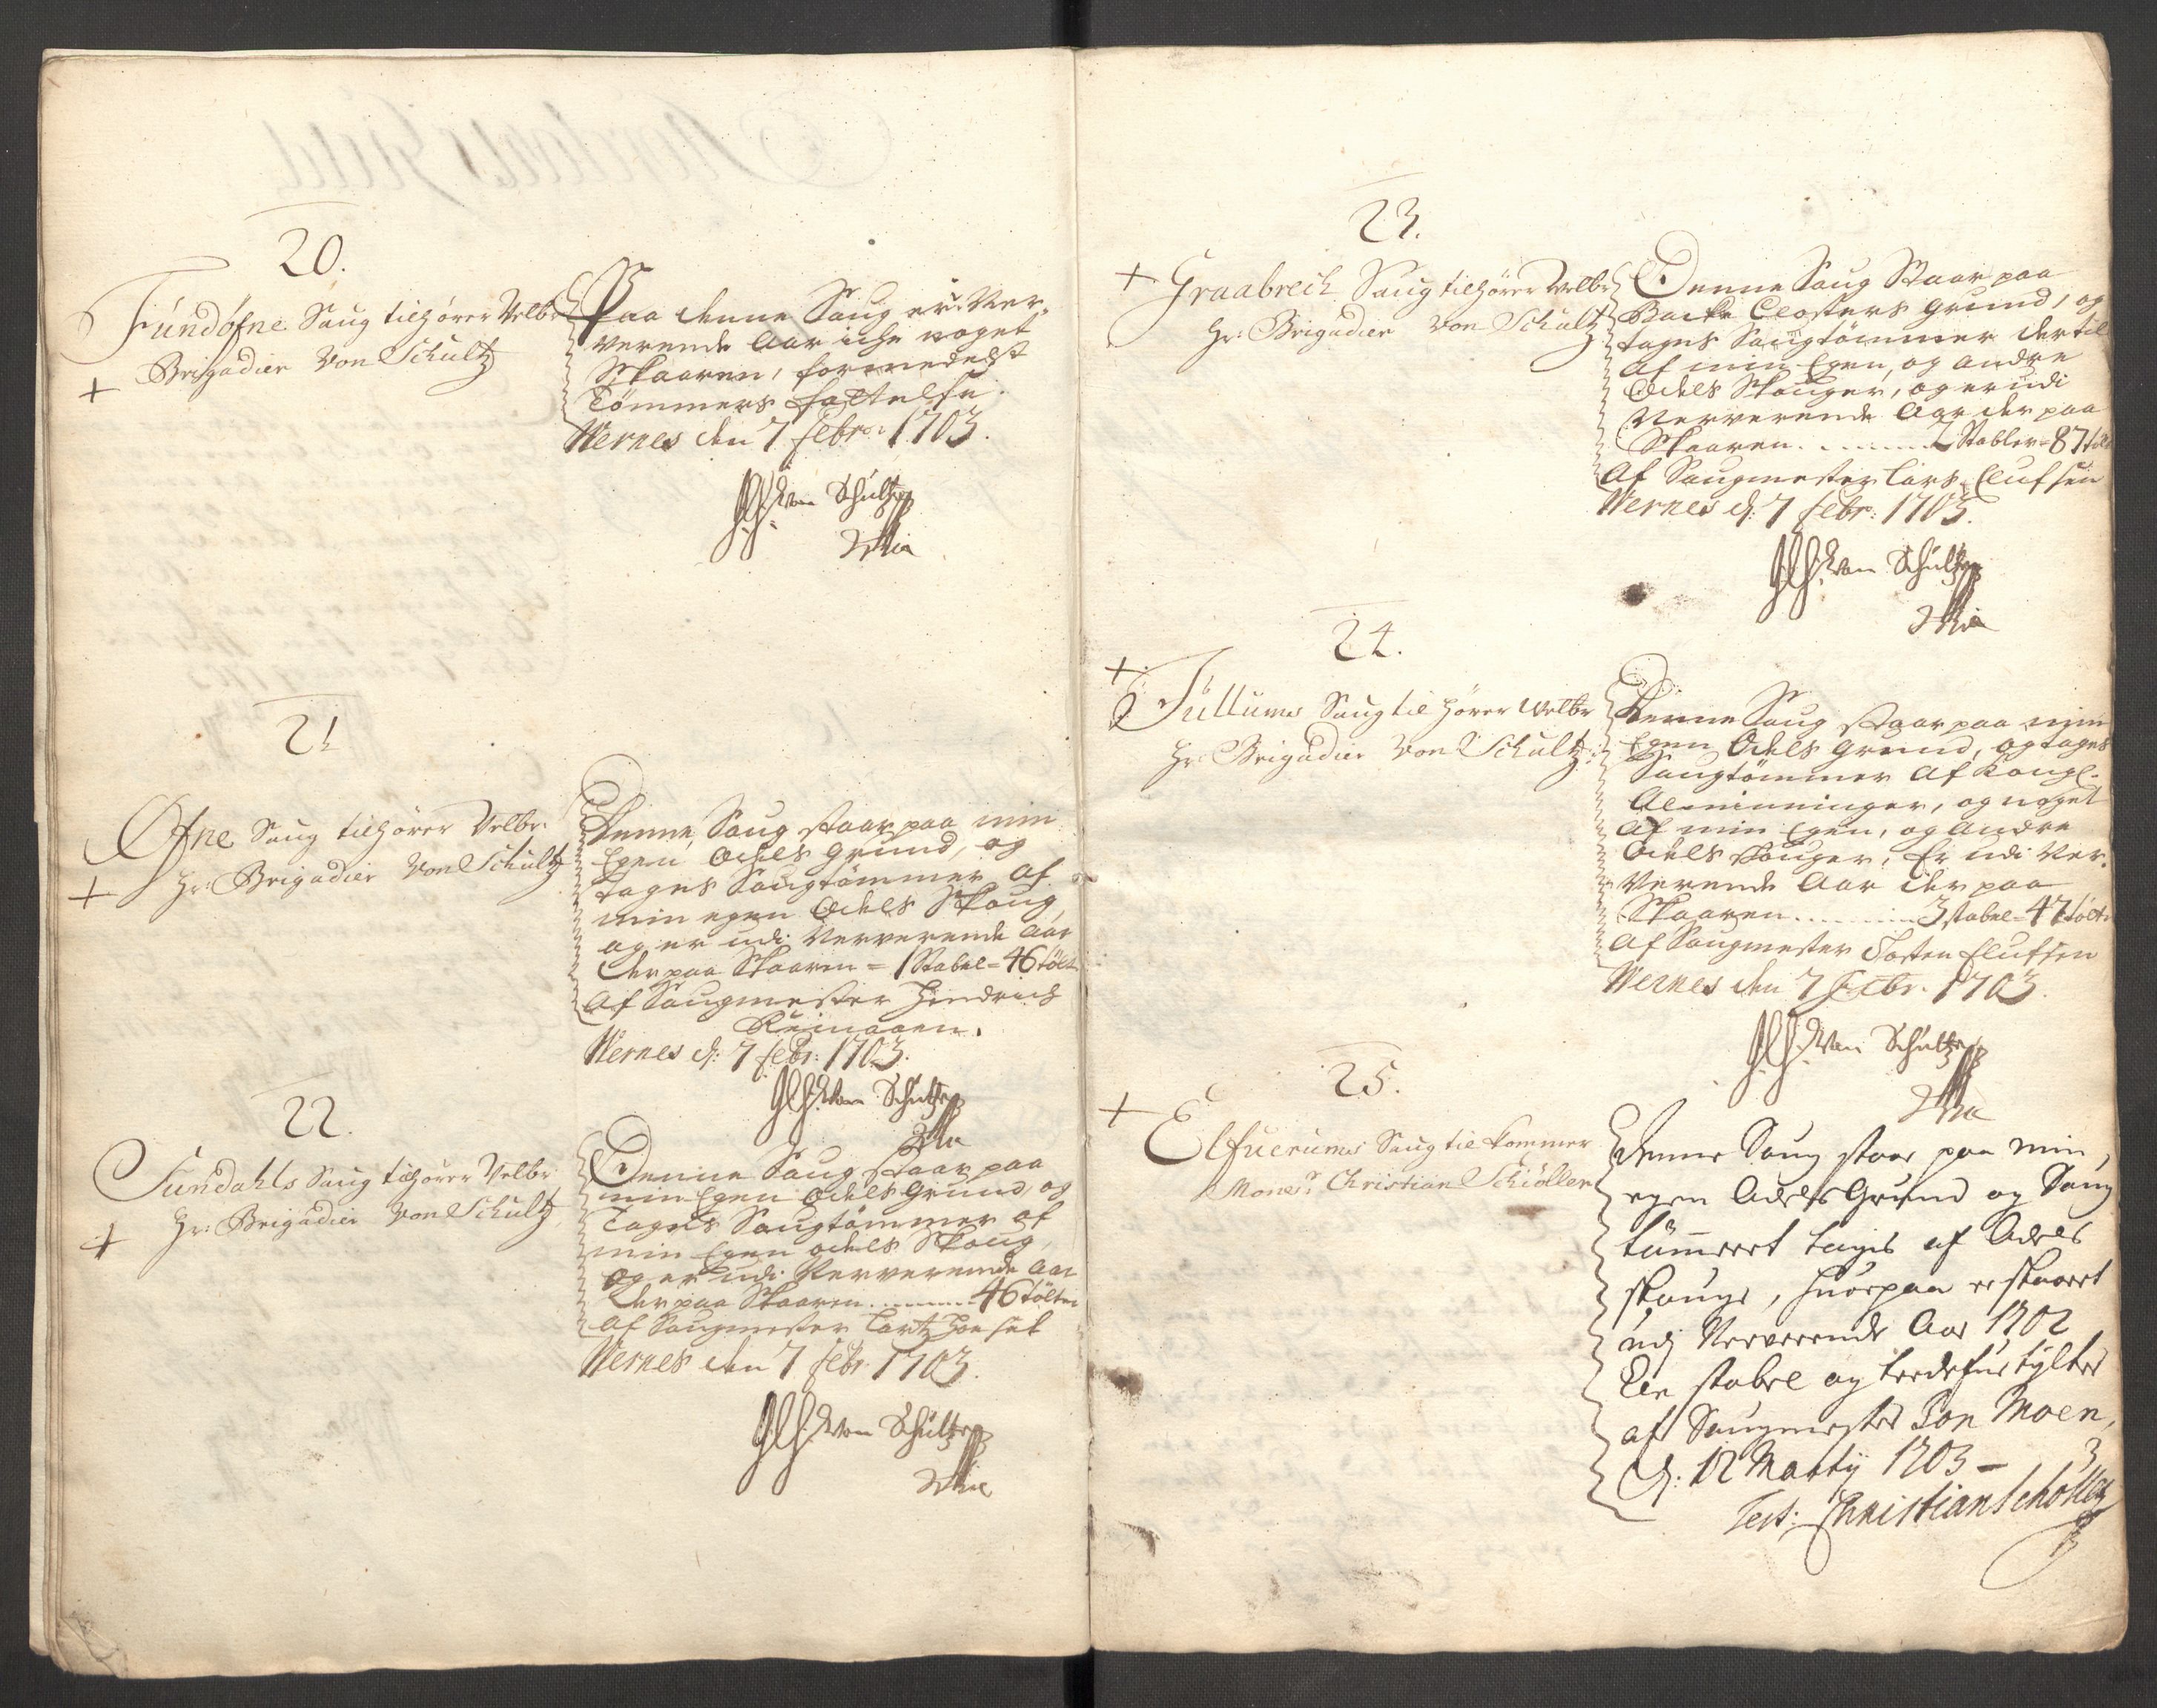 20.
Fundøfne Saug tilhører Velbr
Brigadier Von Schultz
Paa denne Saug er Ver-
verende Aar iche noget
Skaaren, formedelst
Tømmers fattelse.
Wernes den 7 Febr: 1703.
von Schültz
21
Øfne Saug tilhører Velbr:
Hr: Brigadier Von Schultz
Denne Saug staar paa min
Egen Odels Grund, og
tages Saugtømmer af
min egen Odels Skoug,
og er udi Ververende Aar
der paa Skaaren = 1 Stabel = 46 tølt
Af Saugmester Hindrich
Reinaaen.
Wernes d: 7 Febr: 1703.
von Schültz
22.
Sundahls Saug tilhører Velbr:
Hr: Brigadier Von Schultz
Denne Saug staar paa
min Egen Odels Grund, og
Tages Saugtømmer af
min Egen odels Skoug,
og er udi Ververende Aar
der paa Skaaren 46 tølter
Af Saugmester
Wernes den 7 Febr 1703.
von Schültz
23.
Graabrech Saug tilhører Velbr
Hr: Brigadier Von Schultz
Denne Saug Staar paa
Backe Closters Grund, og
tages Saugtømmer dertil
af min Egen, og andre
Odels Skouger, og er udi
Ververende Aar der paa
Skaaren Stabler = 87 tølt
Af Saugmester Lars Elufsen
Wernes d: 7 Febr: 1703.
von Schültz
24.
Tullums Saug tilhører Welbr
Hr: Brigadier Von Schultz
Denne Saug staar paa min
Egen Odels Grund, og tages
Saugtømmer af Kongl.
Alminninger, og noget
af min Egen, og andre
Odels skouger, Er udi Ver-
Verende Aar der paa
Skaaren 3 stabel = 47 tølt
Af Saugmester Josten Elufsen
Wernes den 7 Febr. 1703.
von Schültz
25.
Elfuerums Saug tilkommer
Monsr: Christian Schiøller
Denne Saug staar paa min
egen Odels Grund og Saug
tømmeret tages af Odels
skouge, huorpaa er skaaret
udj Ververende Aar 1702
Een stabel og tredefue tylter
af Saugmester Jon Moen,
D: 12 Martij 1703 —
Test: Christian Schøller